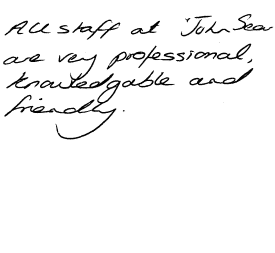 All staff at John Sear
are very professional,
knowledgable and
friendly.